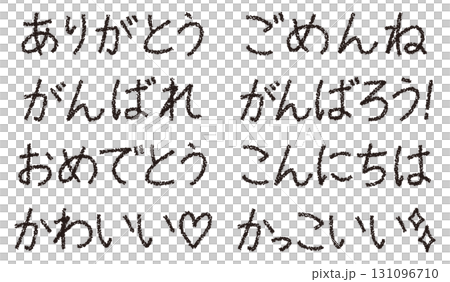 ありがとう ごめんね
がんばれ がんばろう!
おめでとう こんにちは
かわいい♡ かっこいい
PIXTA
pixta.jp - 131096710